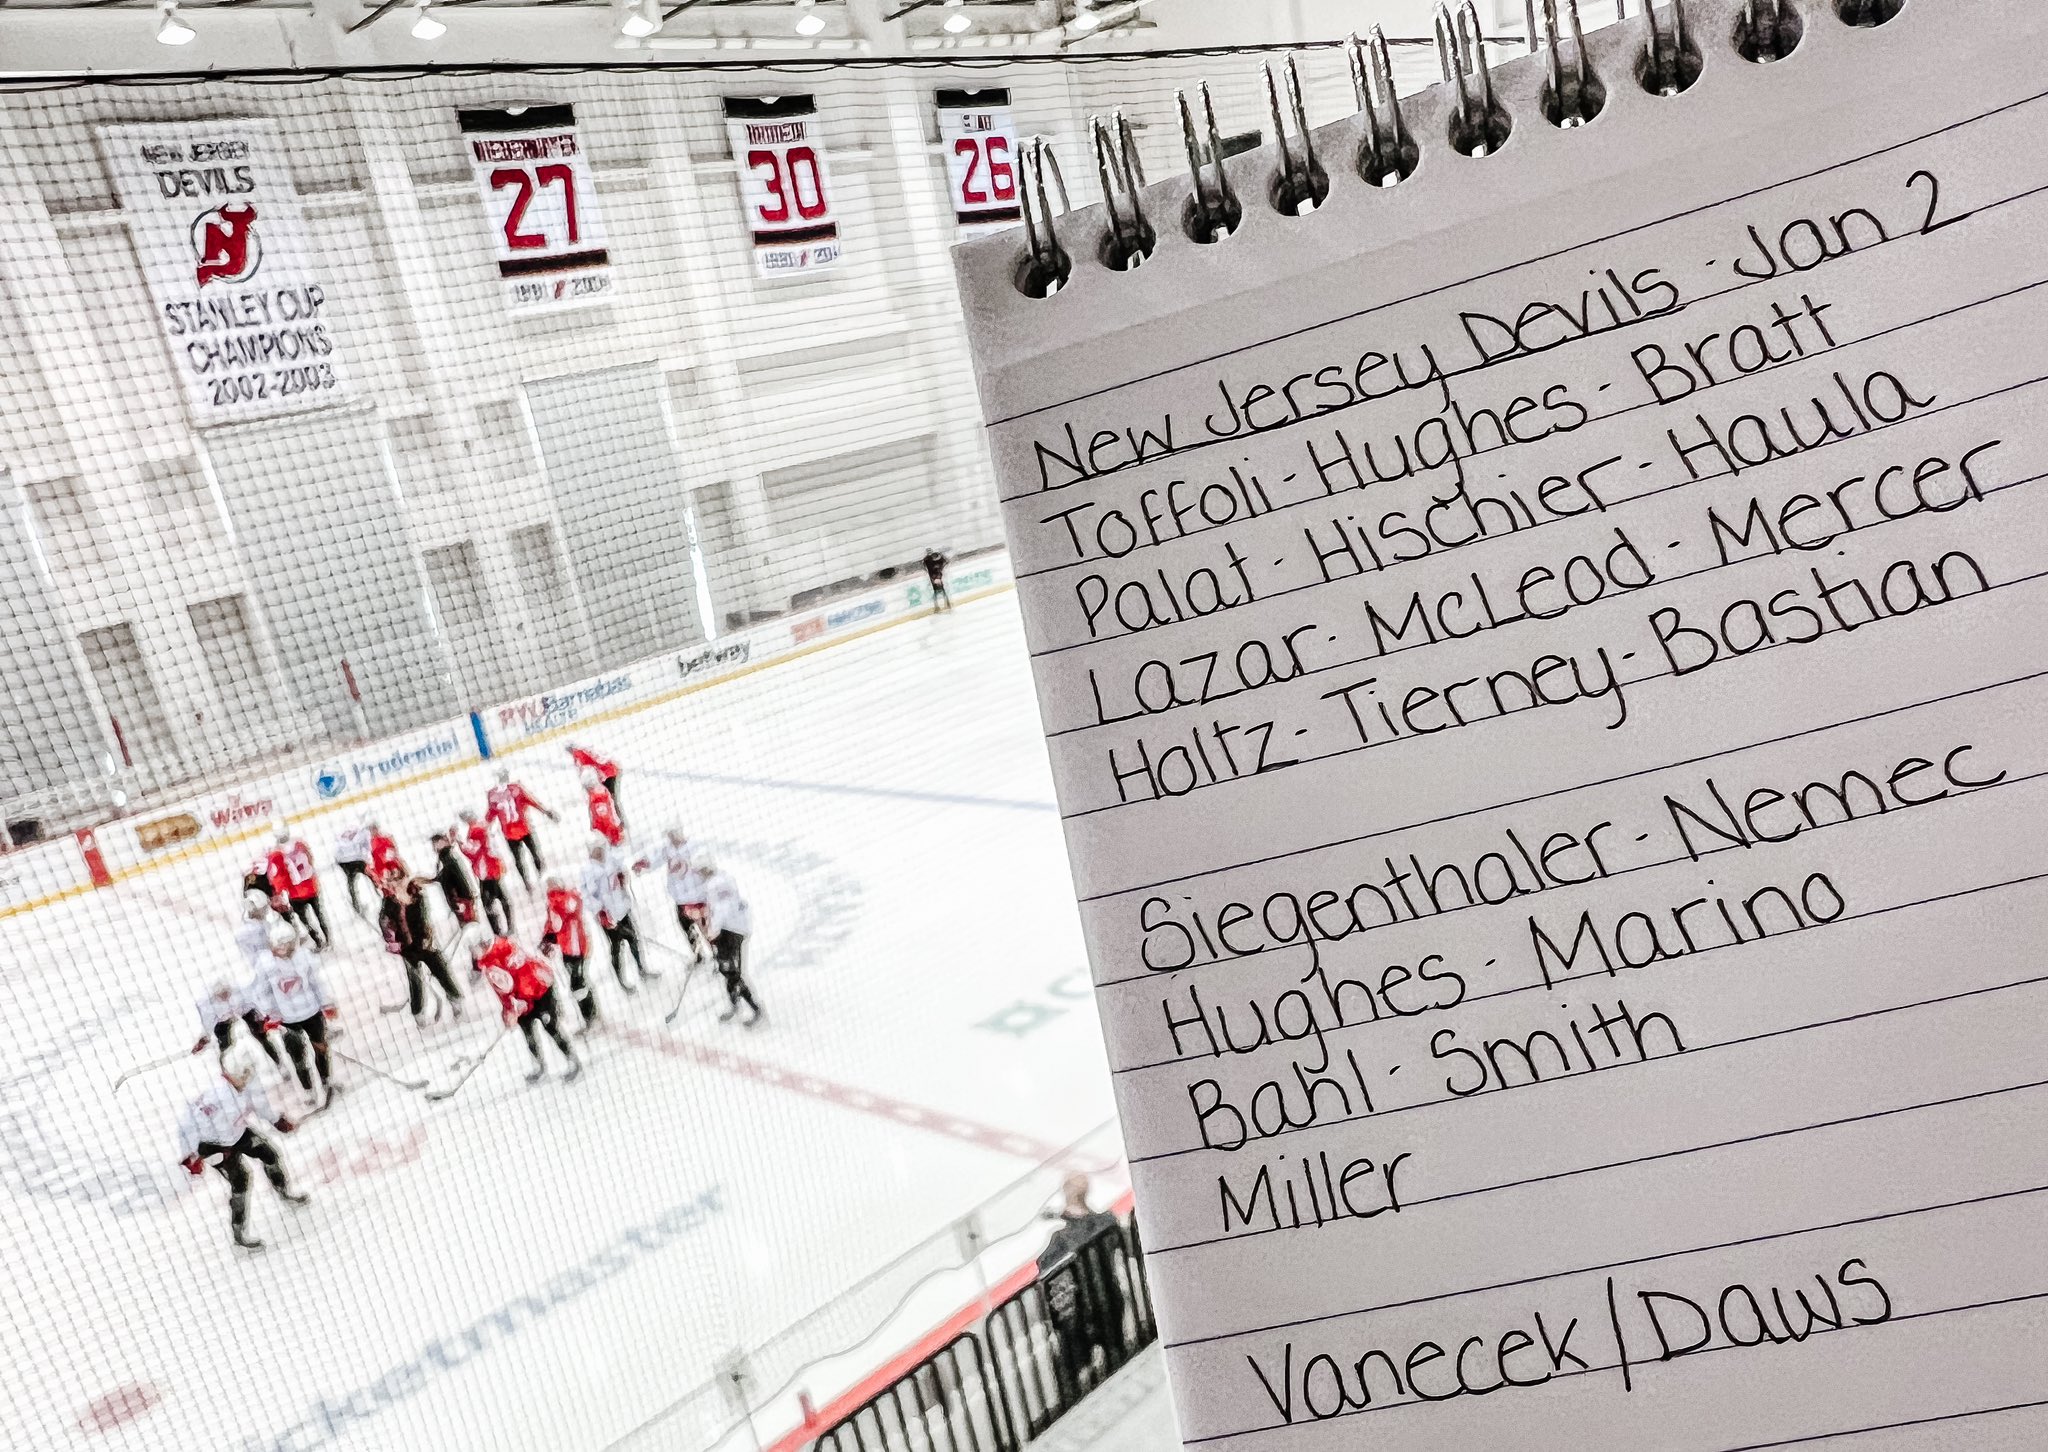 NEW JERSEY
DEVILS
STANLEY CUP
CHAMPIONS
2002-2003
27
30
26
Prudential
RWJBarnabas
HEALTH
betway
Wawa
ticketmaster
New Jersey Devils - Jan 2
Toffoli - Hughes - Bratt
Palat - Hischier - Haula
Lazar - McLeod - Mercer
Holtz - Tierney - Bastian
Siegenthaler - Nemec
Hughes - Marino
Bahl - Smith
Miller
Vanecek / Daws